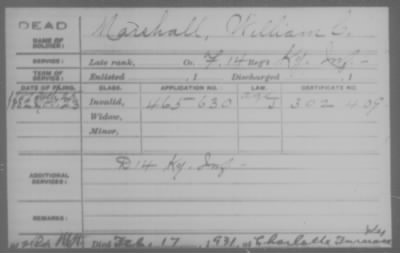 DEAD
NAME OF SOLDIER: Marshall, William C.
SERVICE: Late rank, Co. F, 14 Reg't Ky. Inf.
TERM OF SERVICE: Enlisted , 1 Discharged , 1
DATE OF FILING. CLASS. APPLICATION NO. LAW. CERTIFICATE NO.
Invalid, 465 630 302 409
Widow,
Minor,
ADDITIONAL SERVICES: D 14 Ky. Inf.
REMARKS:
Died Feb. 17, 1931, at Charlotte